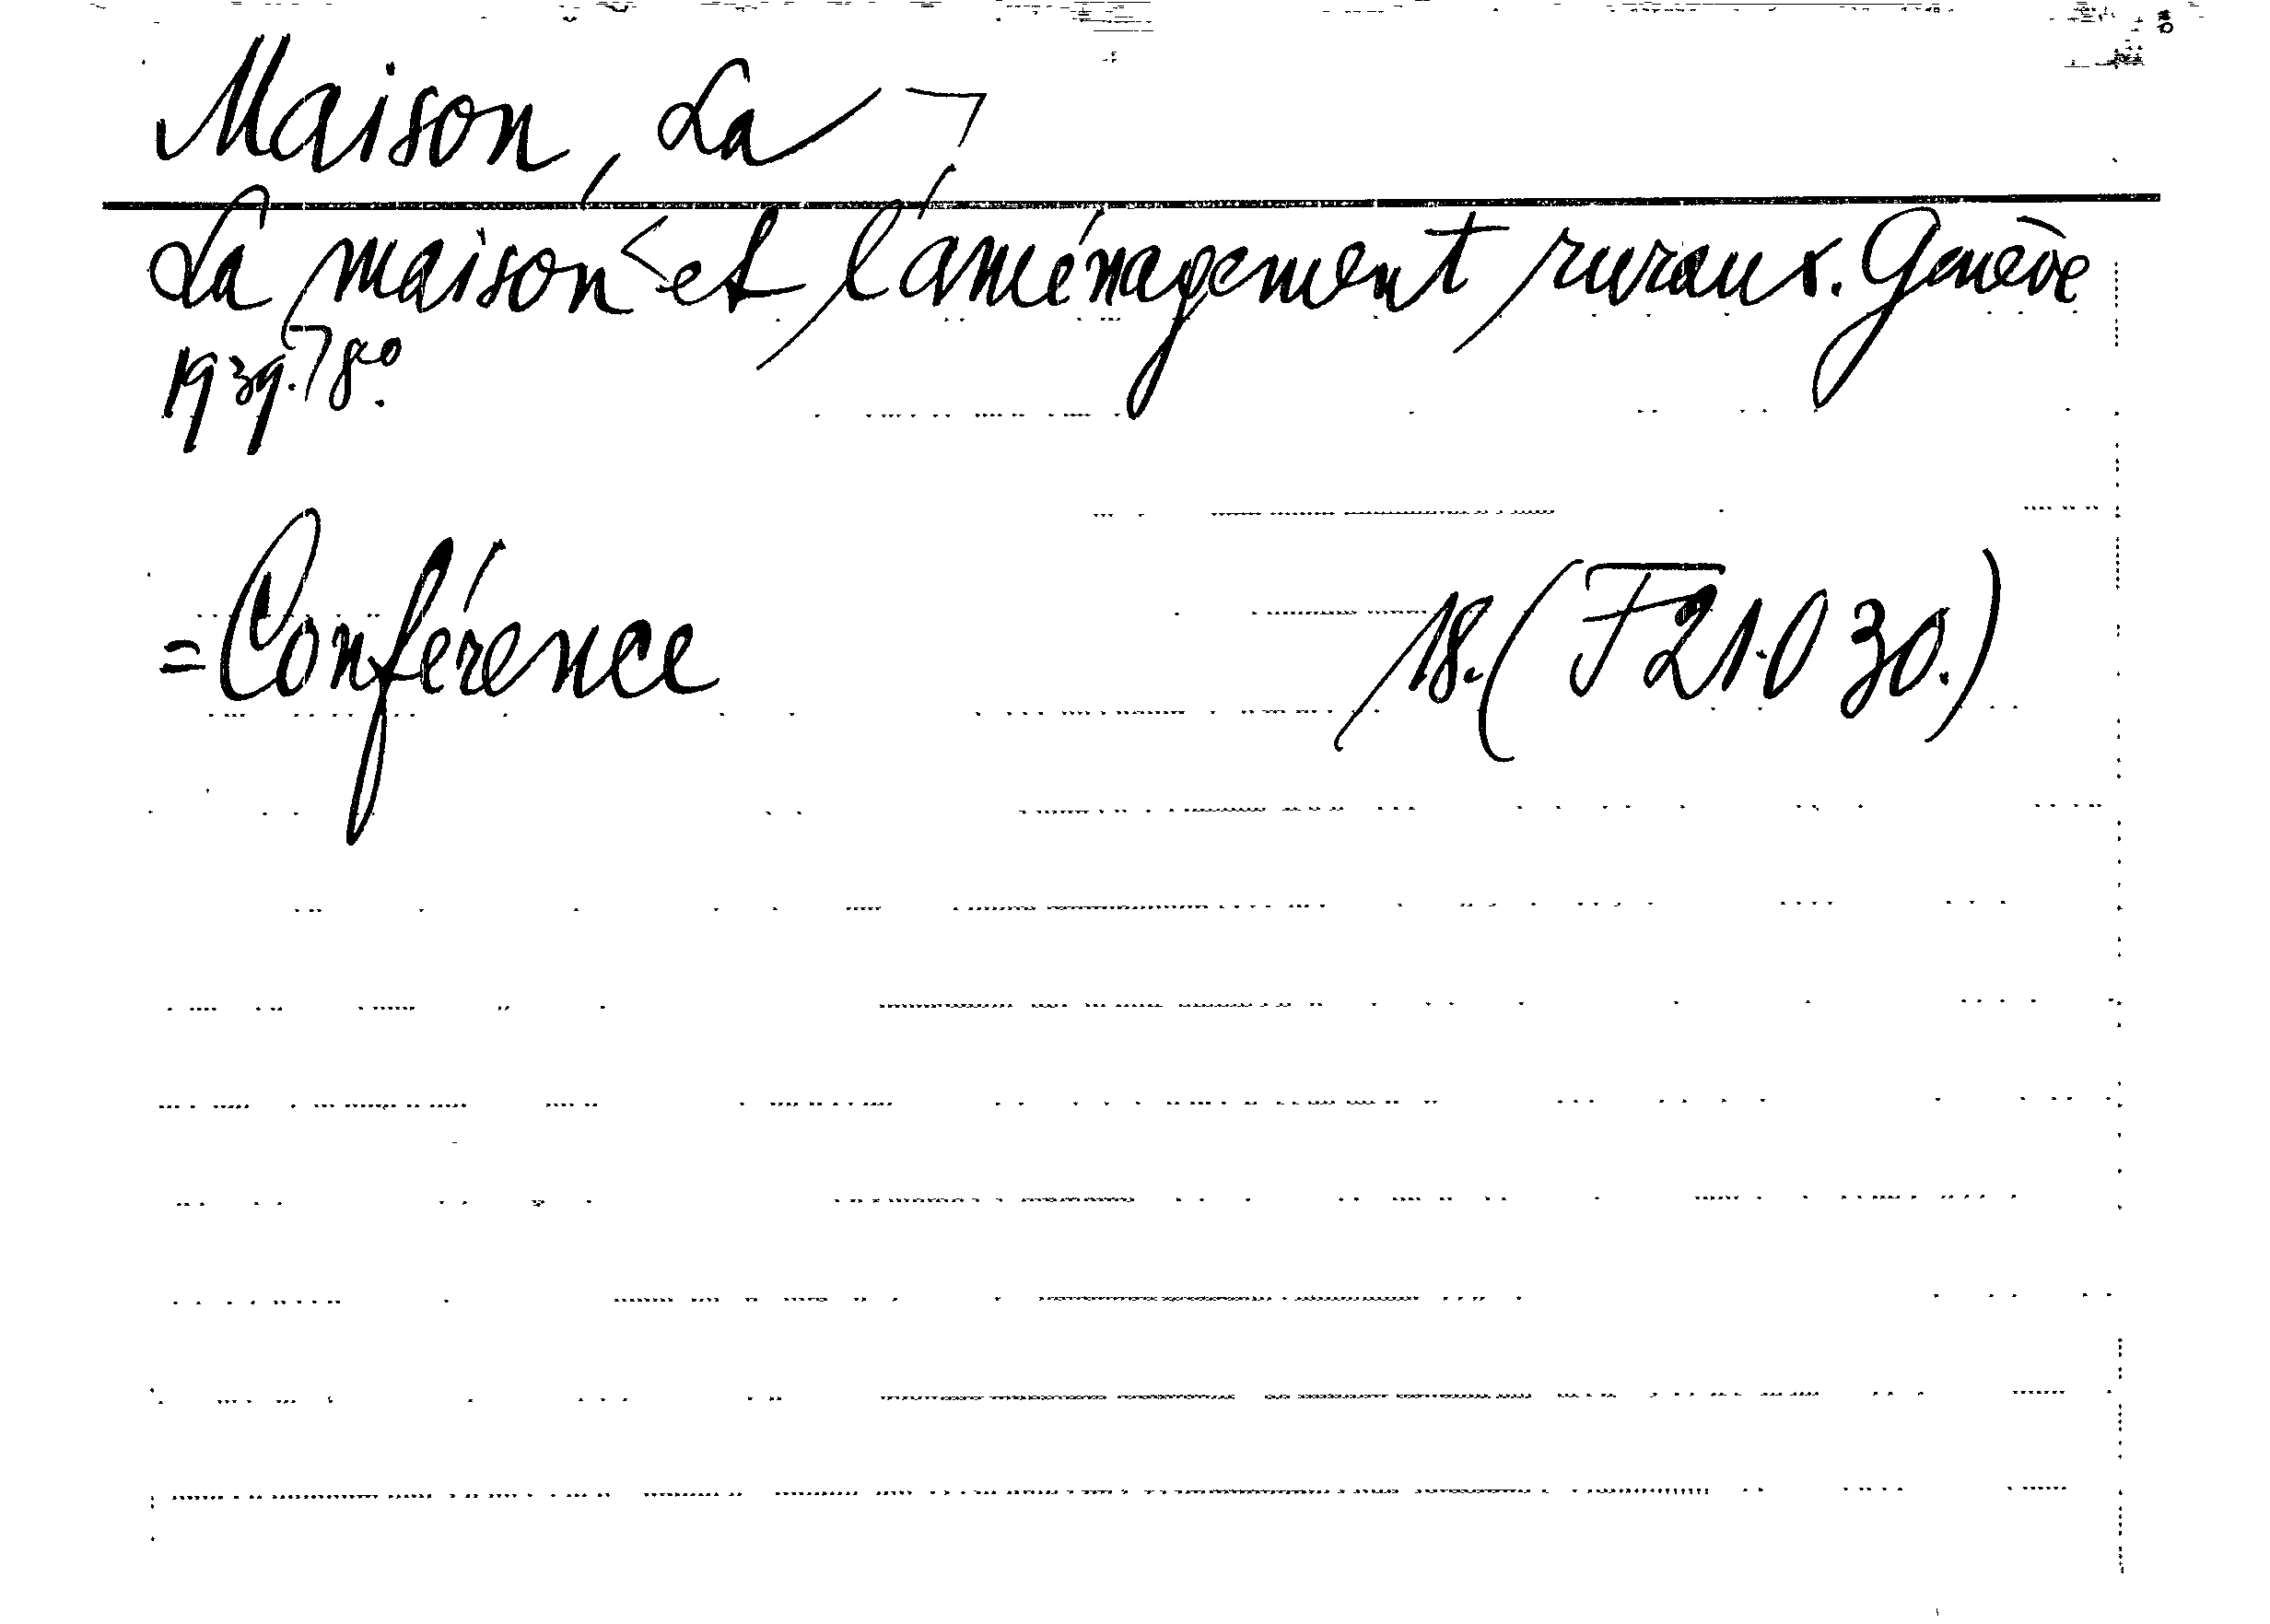 Maison, La ¬
La maison < et l'aménagement ruraux. Genève
1939.⁊ 8°.
= Conférence 18. (F21.030.)